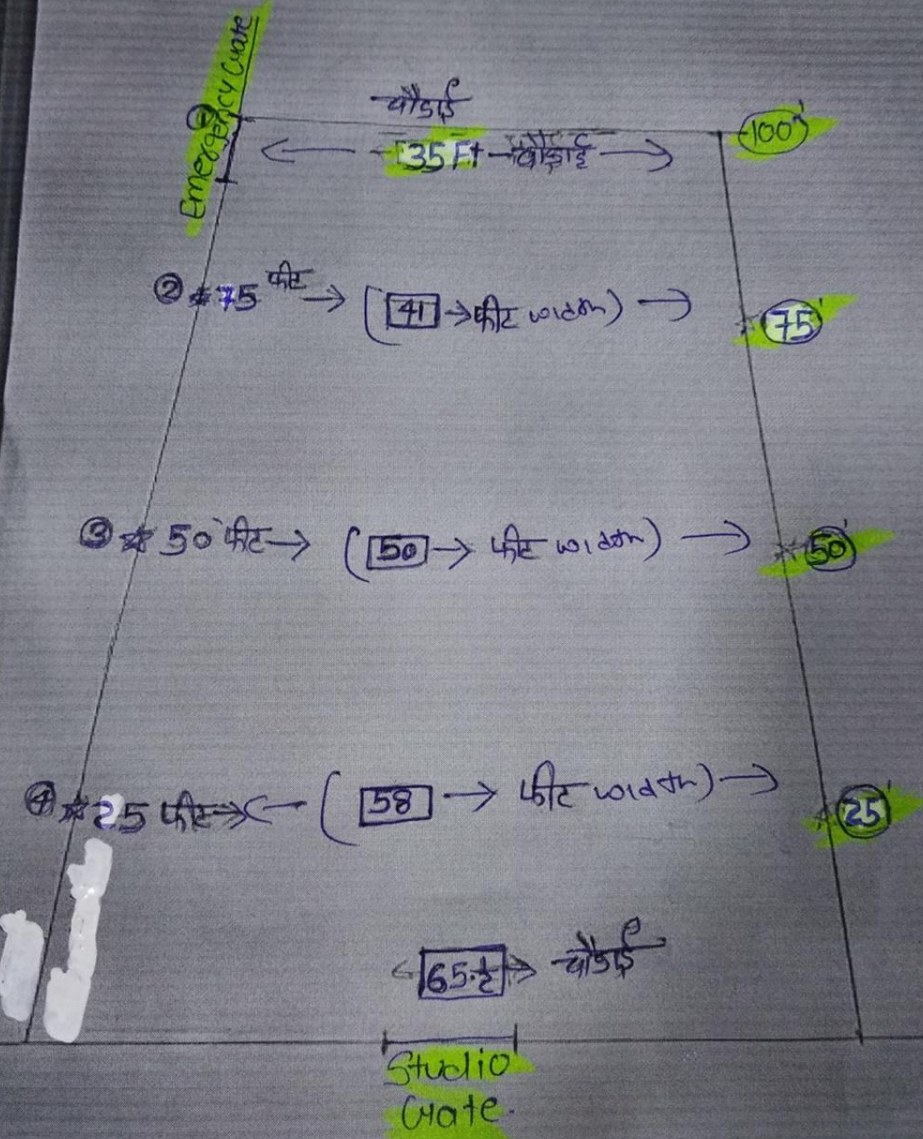 ① Emergency Gate
चौडाई
35 Ft चौडाई
100'
② * 75 फीट → ( 41 → फीट width) →
75'
③ * 50 फीट → ( 50 → फीट width) →
50'
④ * 25 फीट → ← ( 58 → फीट width) →
25'
← 65.½ → चौडाई
Studio
Gate.